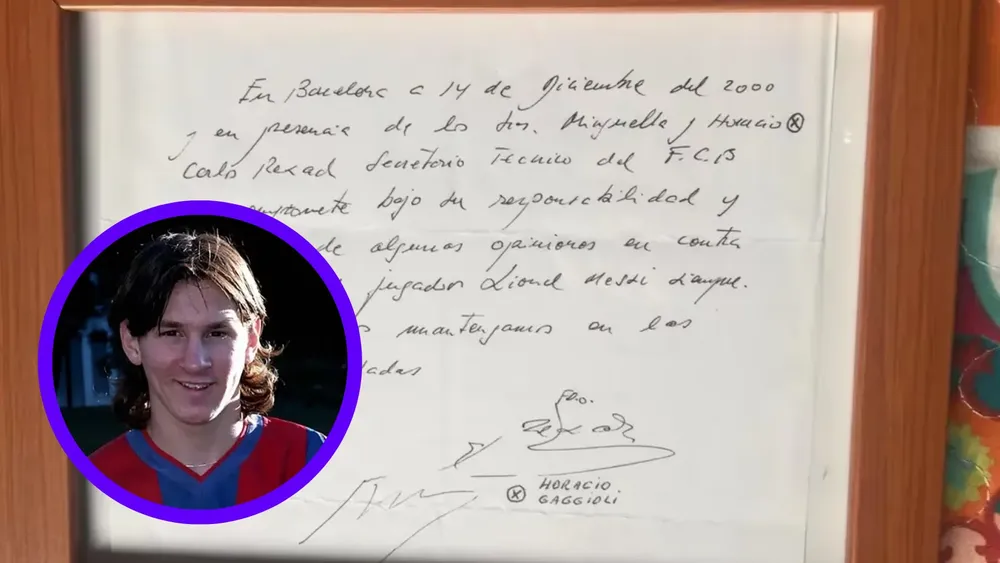 En Barcelona a 14 de Diciembre del 2000
y en presencia de los Sres. Minguella y Horacio ⓧ
Carles Rexach Secretario Tecnico del F.C.B
bajo su responsabilidad y
de algunas opiniones en contra
jugador Lionel Messi siempre
mantengamos en los
Fdo.
ⓧ HORACIO
GAGGIOLI